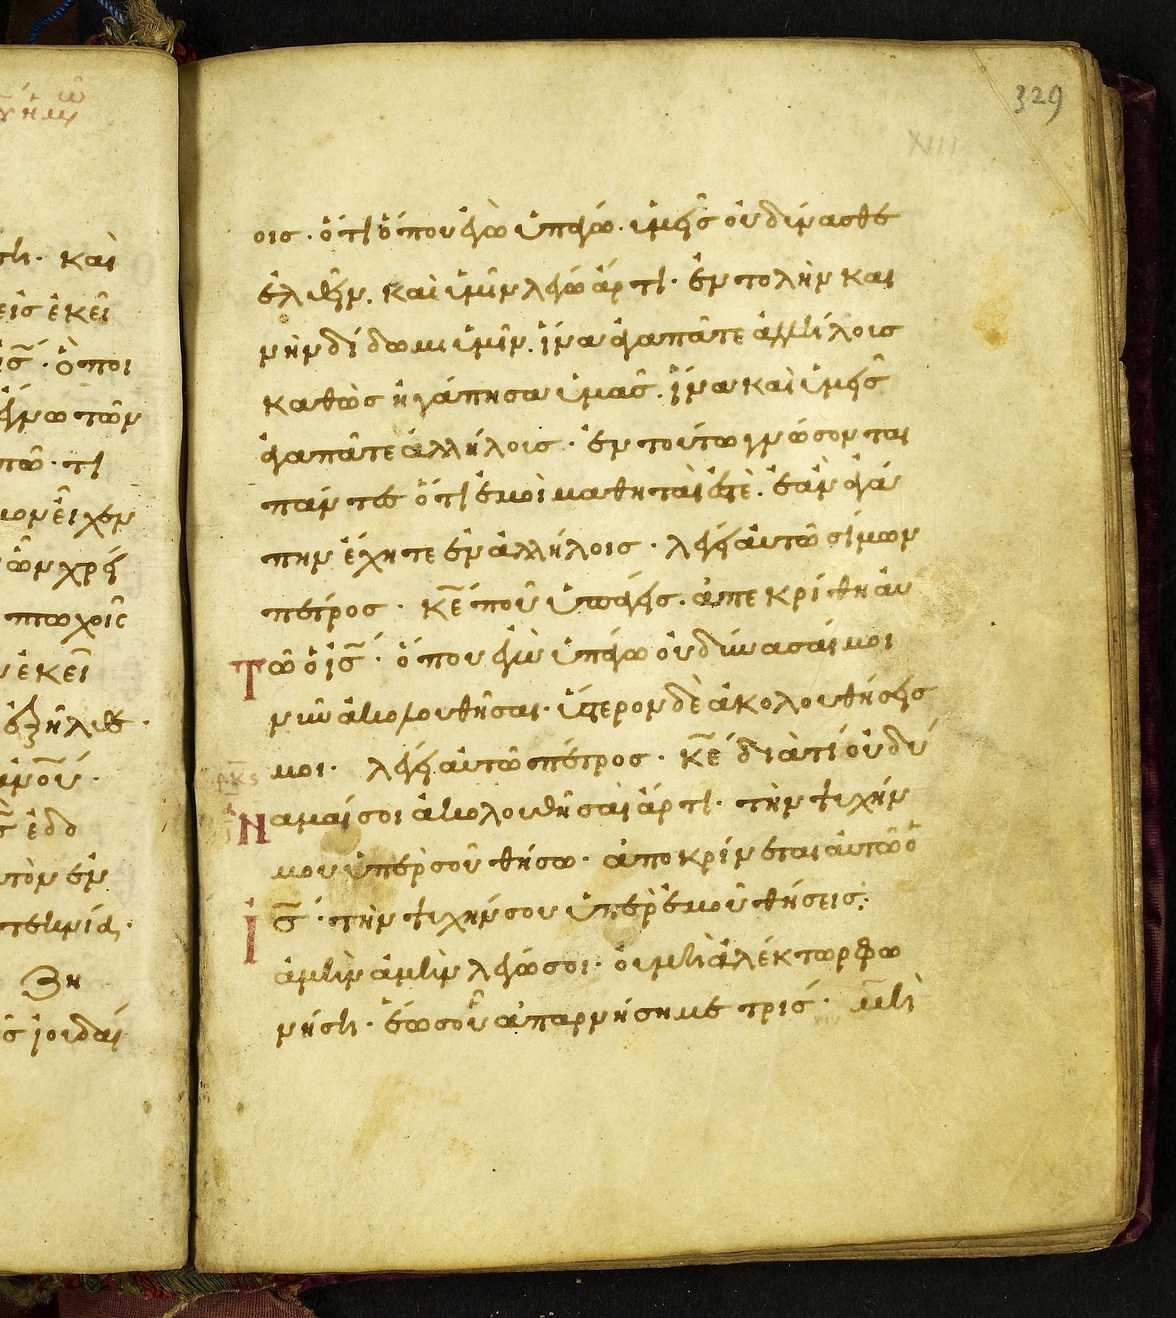 329
XIII
οις · ὅτι ὅπου ἐγὼ ὑπάγω · ὑμεῖς οὐ δύνασθε
ἐλθεῖν. καὶ ὑμῖν λέγω ἄρτι · ἐντολὴν και
νὴν δίδωμι ὑμῖν. ἵνα ἀγαπᾶτε ἀλλήλοις
καθὼς ἠγάπησα ὑμᾶς. ἵνα καὶ ὑμεῖς
ἀγαπᾶτε ἀλλήλοις · ἐν τούτω γνώσονται
πάντες ὅτι ἐμοὶ μαθηταί ἐστὲ. ἐὰν ἀγά
πην ἔχητε ἐν ἀλλήλοις · λέγει αὐτῶ σίμων
πέτρος · κε̅ ποῦ ὑπάγεις. ἀπεκρίθη αὐ
τῶ ὁ ις̅ · ὅπου ἐγὼ ὑπάγω οὐ δύνασαί μοι
νῦν ἀκολουθῆσαι · ὕστερον δὲ ἀκολουθήσεις
μοι · λέγει αὐτῶ πέτρος · κε̅ διὰ τί οὐ δύ
ναμαί σοι ἀκολουθῆσαι ἄρτι · τὴν ψυχήν
μου ὑπὲρ σοῦ θήσω · ἀποκρίνεται αὐτῶ ὁ
ις̅ · τὴν ψυχήν σου ὑπὲρ ἐμοῦ θήσεις;
ἀμὴν ἀμὴν λέγω σοι · οὐ μὴ ἀλέκτωρ φω
νήση · ἕως οὗ ἀπαρνήση με τρίς · μὴ